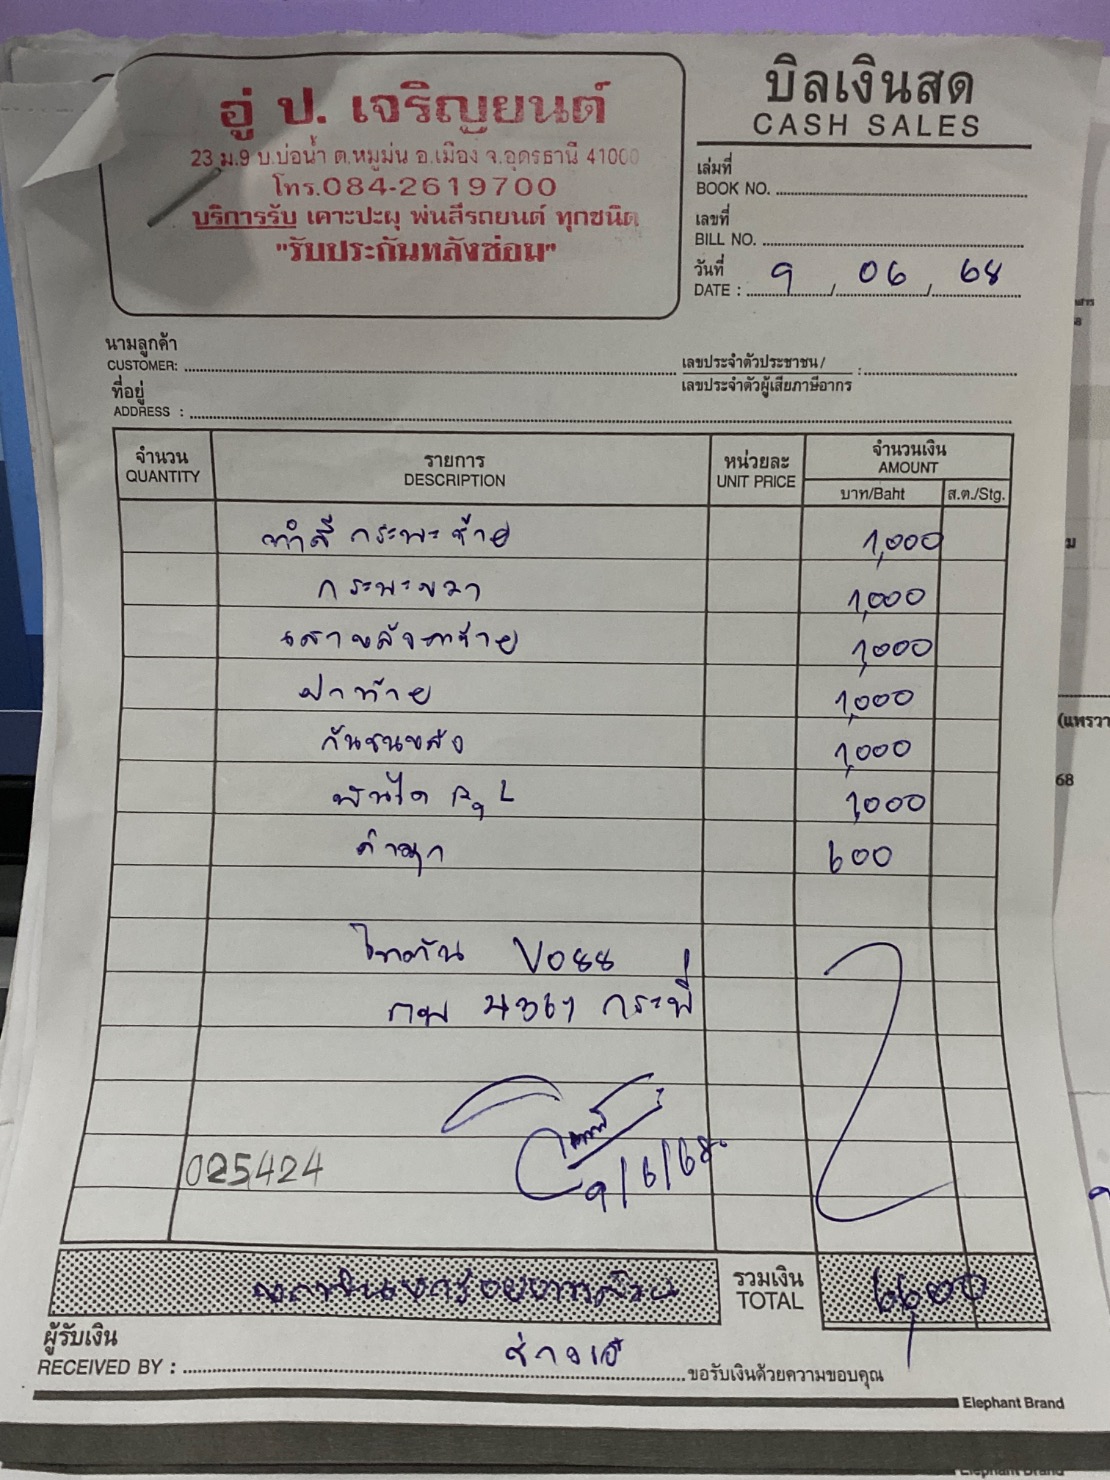 บิลเงินสด
CASH SALES
อู่ ป. เจริญยนต์
23 ม.9 บ.บ่อน้ำ ต.หมูม่น อ.เมือง จ.อุดรธานี 41000
โทร.084-2619700
บริการรับ เคาะปะผุ พ่นสีรถยนต์ ทุกชนิด
"รับประกันหลังซ่อม"
เล่มที่
BOOK NO.
เลขที่
BILL NO.
วันที่
DATE : 9 / 06 / 68
นามลูกค้า
CUSTOMER:
เลขประจำตัวประชาชน/
เลขประจำตัวผู้เสียภาษีอากร :
ที่อยู่
ADDRESS :
จำนวน รายการ หน่วยละ จำนวนเงิน
QUANTITY DESCRIPTION UNIT PRICE AMOUNT
บาท/Baht ส.ต./Stg.
ทำสี กระพะซ้าย 1,000
กระพะขวา 1,000
เสาหลังคาซ้าย 1,000
ฝาท้าย 1,000
กันชนหลัง 1,000
บันได R,L 1,000
600
ไททัน V088
กพ 4367 กระบี่
9/6/68
025424
หกพันหกร้อยบาทถ้วน
รวมเงิน
TOTAL 6,600
ผู้รับเงิน
RECEIVED BY : ช่างเอ้
ขอรับเงินด้วยความขอบคุณ
Elephant Brand